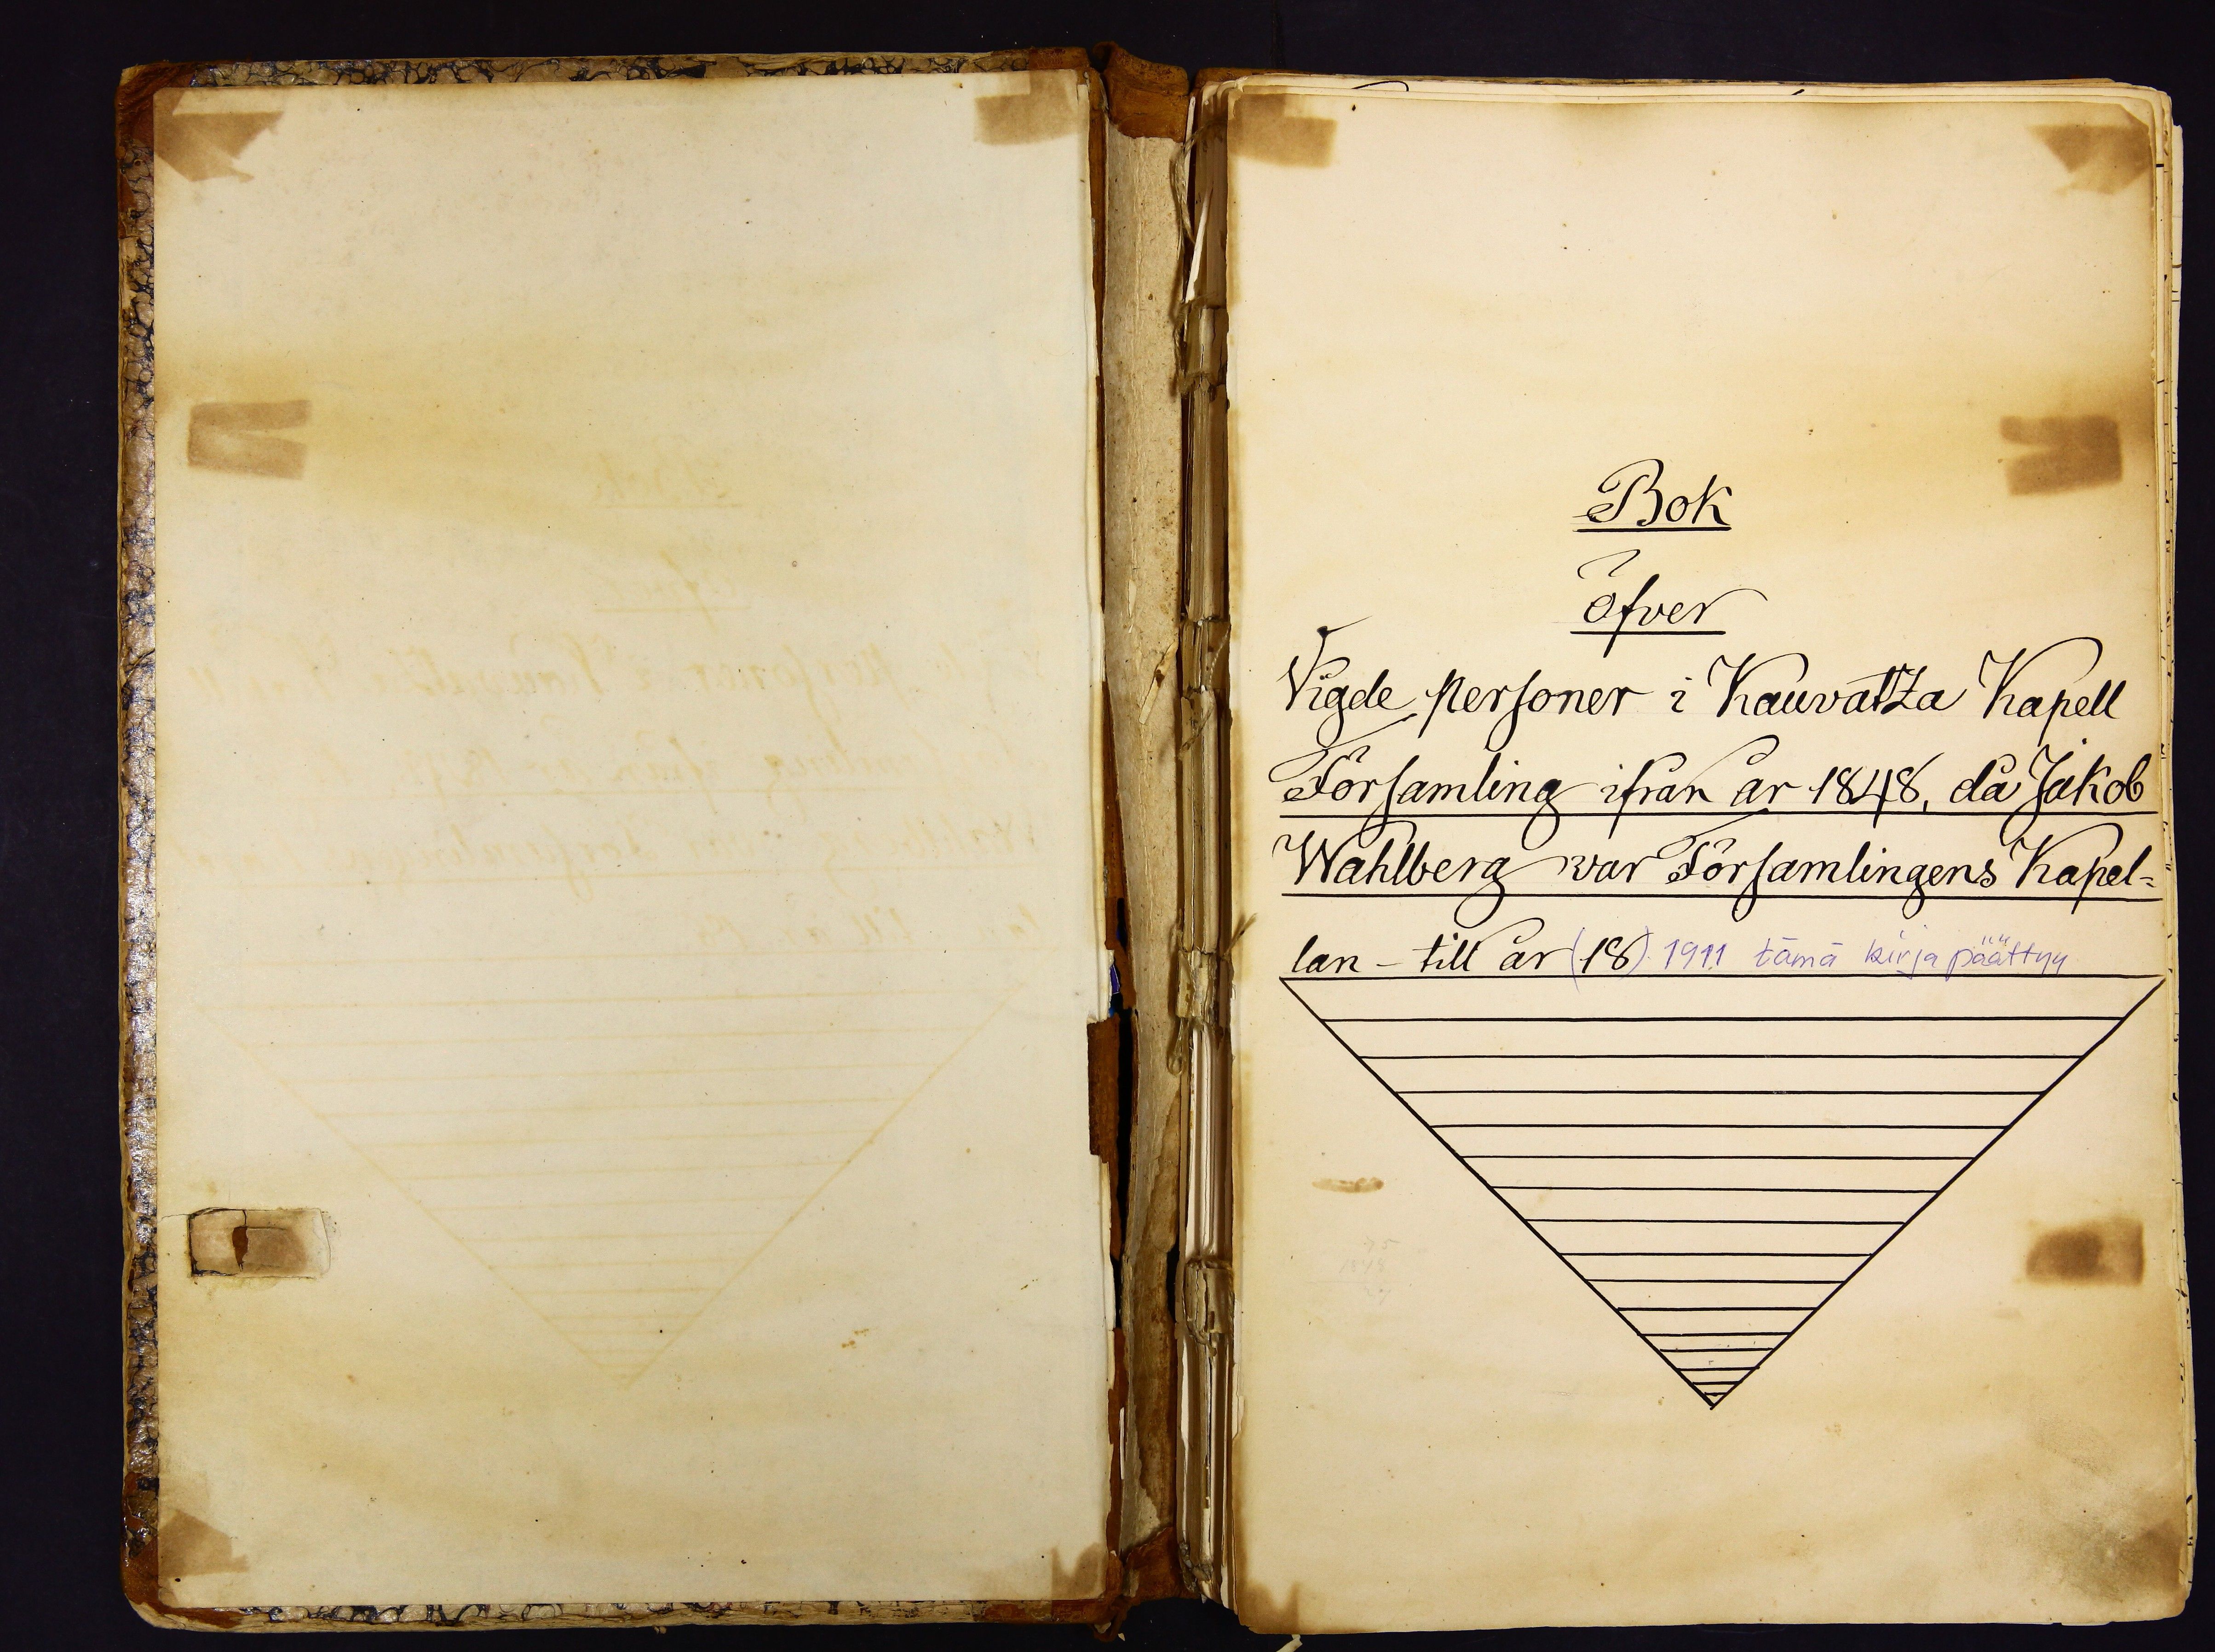 Bok
öfver
Vigde personer i Kauvatza Kapell
Församling ifrån år 1848, då Jakob
Wahlberg war Församlingens Kapel=
lan - till år (18) 1911 tämä kirja päättyy